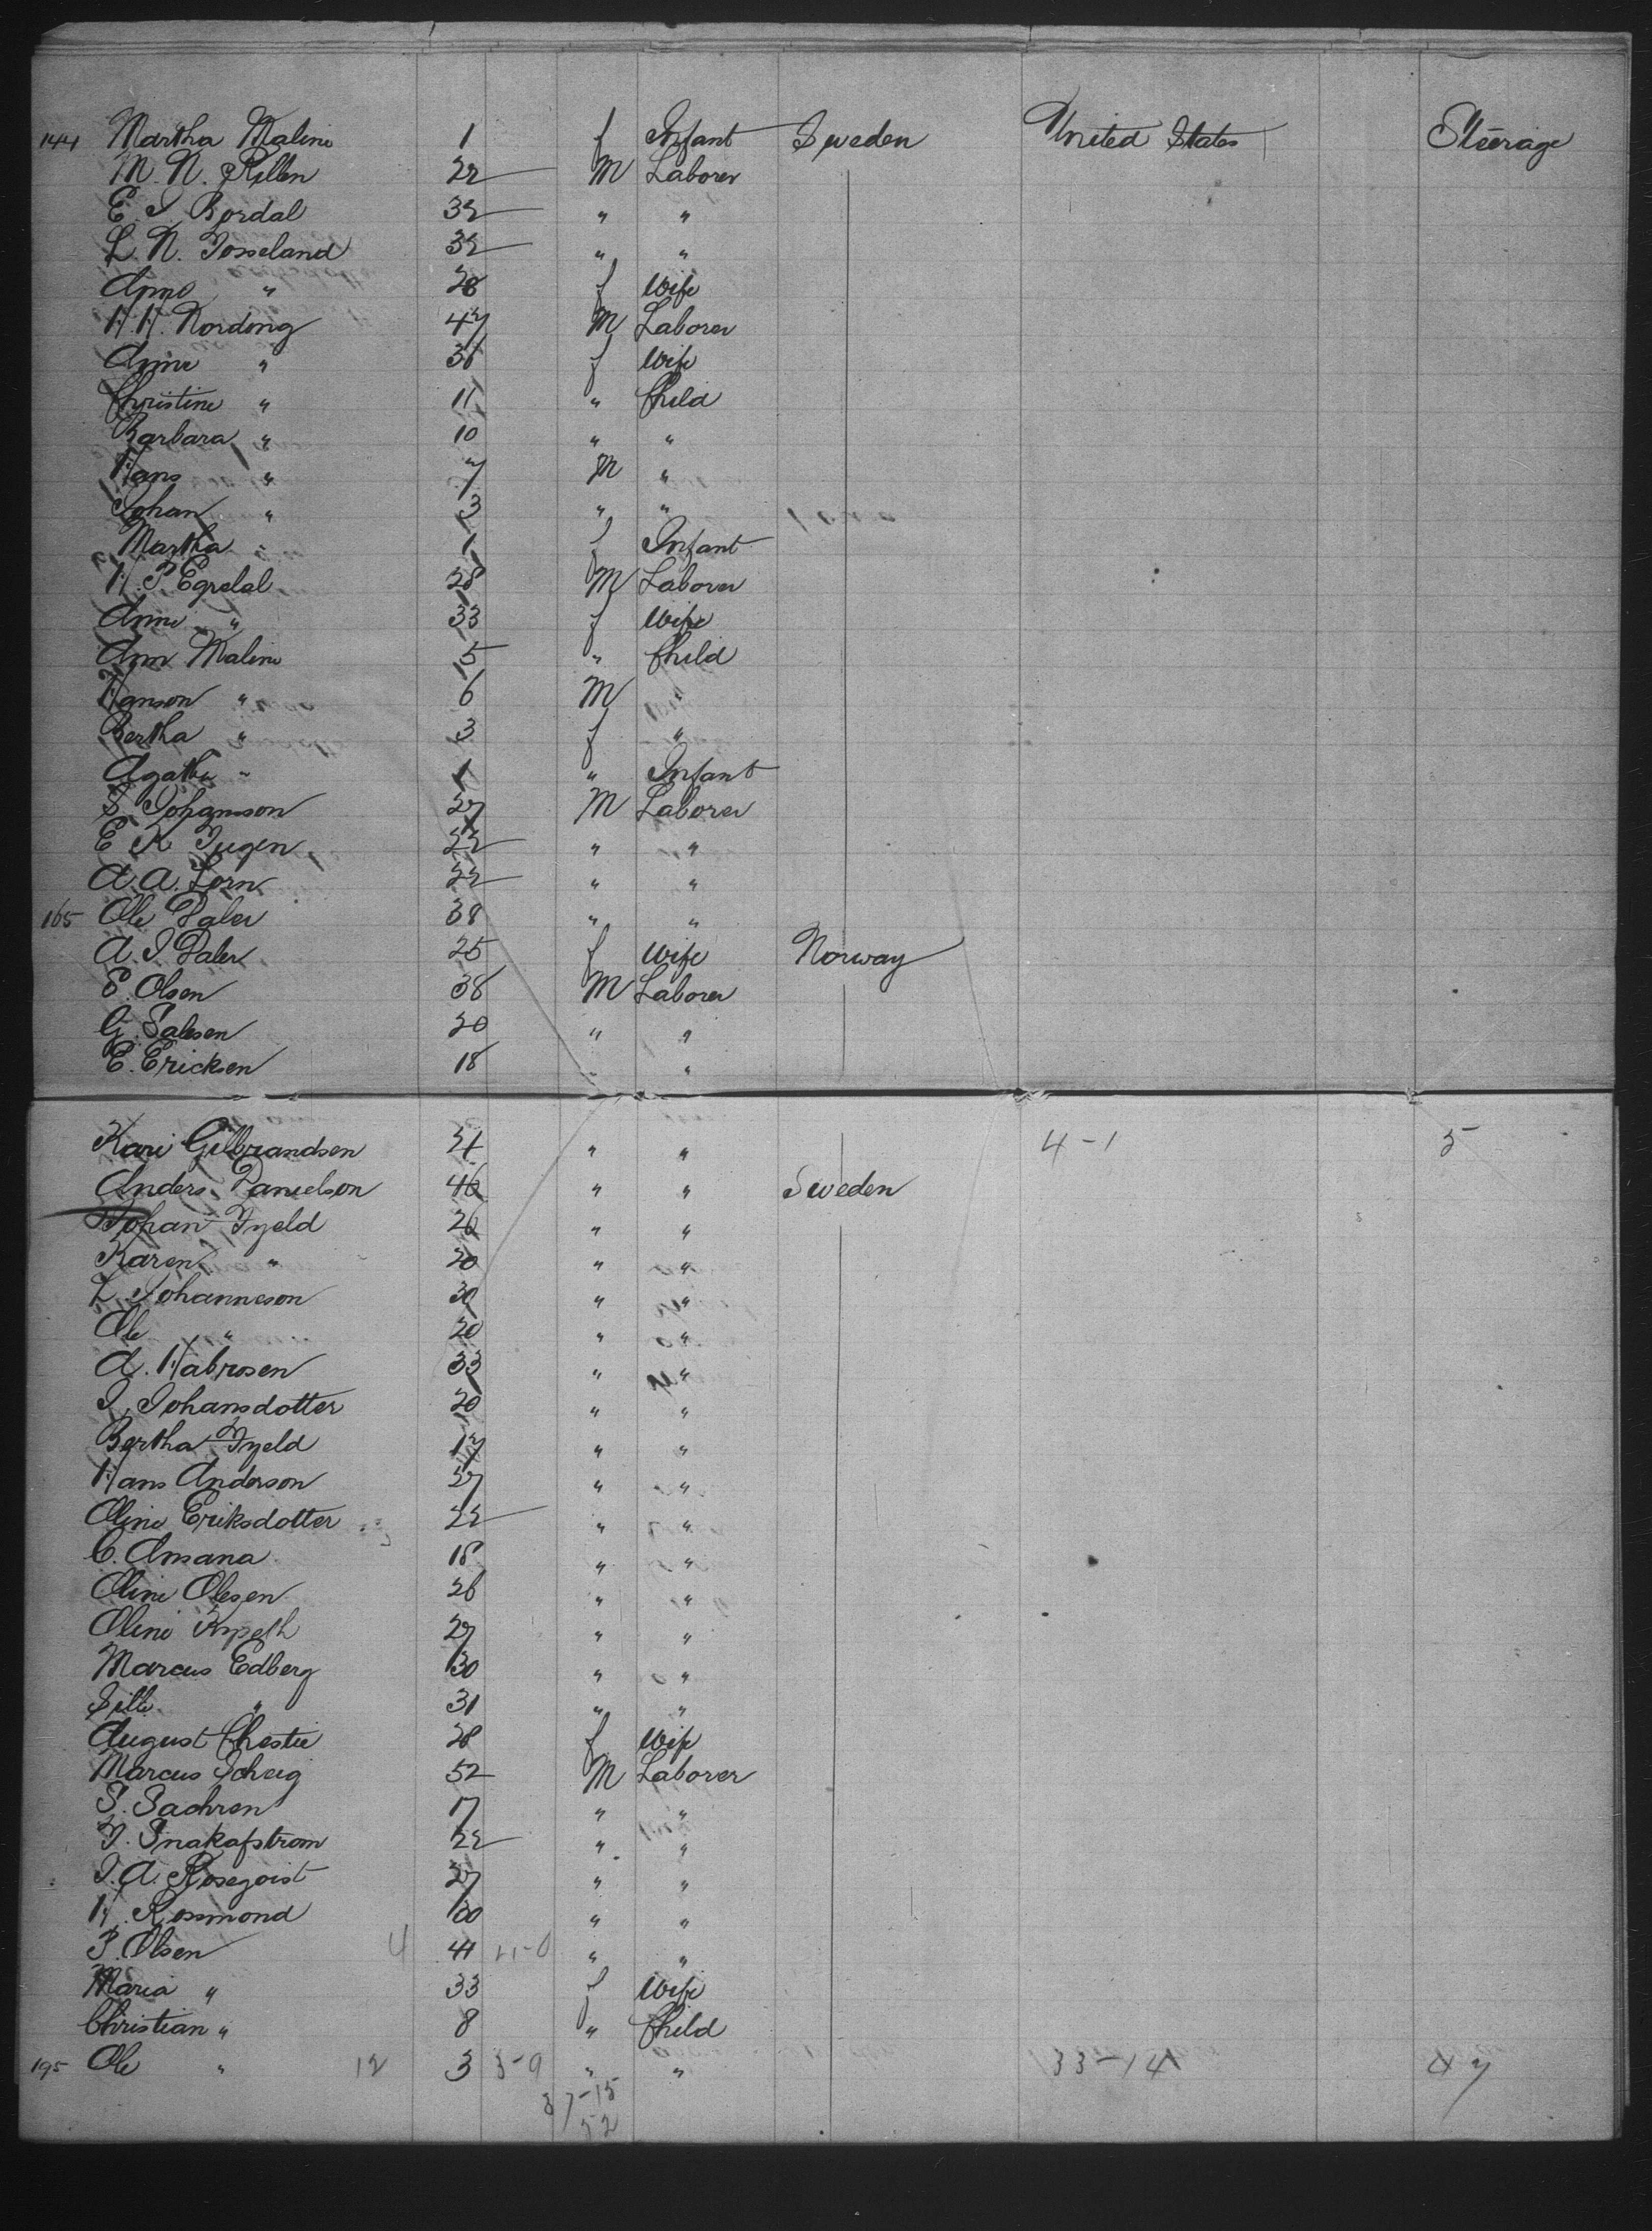 144 Martha Maline 1 f Infant Sweden United States Steerage
M. N. Rillen 22 M Laborer
E. I. Bordal 32 " "
L. N. Josseland 32 " "
Anna " 28 f Wife
H. H. Nordeng 47 M Laborer
Anne " 36 f Wife
Christine " 11 " Child
Barbara " 10 " "
Hans " 7 M "
Johan " 3 " "
Martha " 1 f Infant
H. P. Egrelal 28 M Laborer
Anne " 33 f Wife
Ann Maline 5 " Child
Hanson " 6 M "
Bertha " 3 f "
Agathe " 1 " Infant
I. Johansson 27 M Laborer
E K Tugen 22 " "
A. A. Lorn 22 " "
165 Ole Daler 38 " "
A. I. Daler 25 f Wife Norway
E. Olsen 38 M Laborer
G. Salesen 20 " "
E. Ericksen 18 " "
Kari Gilbrandsen 31 " " 4-1 5
Anders Danielson 46 " " Sweden
Johan Fyeld 26 " "
Karen " 20 " "
L. Johanneson 30 " "
Ole " 20 " "
A. Habrosen 33 " "
I. Johansdotter 20 " "
Bertha Fyeld 17 " "
Hans Anderson 27 " "
Oline Eriksdotter 22 " "
C. Amana 18 " "
Oline Olesen 26 " "
Oline 27 " "
Marcus Edberg 30 " "
31 " "
August Chestie 28 f Wife
Marcus Scheig 52 M Laborer
S. Sachren 17 " "
T. Snakafstrom 22 " "
I. A. Rosegoist 27 " "
H. Rosmond 30 " "
P. Olsen 4 41 " "
Maria " 33 f Wife
Christian " 8 " Child
195 Ole " 12 3 3-9 " " 33-14 47
37-15
52